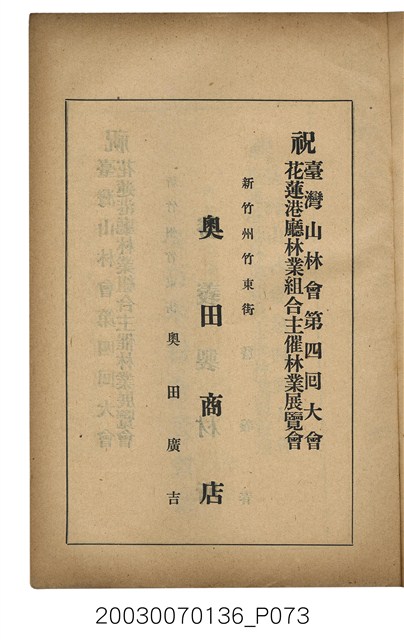 祝
臺灣山林會第四回大會
花蓮港廳林業組合主催林業展覽會
新竹州竹東街
奧田商店
奧田廣吉
20030070136_P073